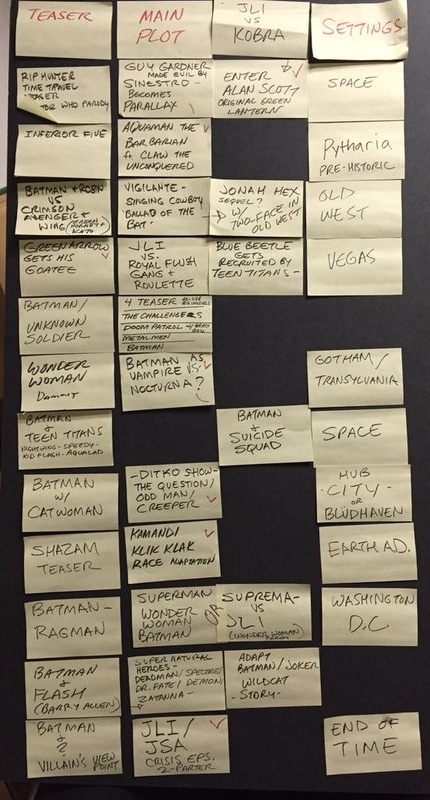 TEASER
MAIN
PLOT
JLI
VS
KOBRA
SETTINGS
RIP HUNTER
TIME TRAVEL
TEASER
DR WHO PARODY
GUY GARDNER
MADE EVIL BY
SINESTRO -
BECOMES
PARALLAX
ENTER
ALAN SCOTT
ORIGINAL GREEN
LANTERN
SPACE
INFERIOR FIVE
AQUAMAN THE
BARBARIAN
ft CLAW THE
UNCONQUERED
Pytharia
PRE-HISTORIC
BATMAN + ROBIN
VS
CRIMSON
AVENGER +
WING
VIGILANTE -
SINGING COWBOY
BALLAD OF THE
BAT.
JONAH HEX
SEQUEL?
W/
TWO-FACE IN
OLD WEST
OLD
WEST
GREEN ARROW
GETS HIS
GOATEE
JLI
VS.
ROYAL FLUSH
GANG +
ROULETTE
BLUE BEETLE
GETS
RECRUITED BY
TEEN TITANS -
VEGAS
BATMAN/
UNKNOWN
SOLDIER
4 TEASER
THE CHALLENGERS
DOOM PATROL W/BEAST BOY
METAL MEN
BATMAN
WONDER
WOMAN
Dammit
BATMAN AS
VAMPIRE VS.
NOCTURNA?
GOTHAM/
TRANSYLVANIA
BATMAN
+
TEEN TITANS
NIGHTWING - SPEEDY -
KID FLASH - AQUALAD
BATMAN
+
SUICIDE
SQUAD
SPACE
BATMAN
W/
CATWOMAN
- DITKO SHOW -
THE QUESTION/
ODD MAN/
CREEPER
HUB
- CITY -
OR
BLÜDHAVEN
SHAZAM
TEASER
KAMANDI
KLIK KLAK
RACE ADAPTATION
EARTH A.D.
BATMAN -
RAGMAN
SUPERMAN
WONDER
WOMAN
BATMAN
OR
SUPREMA -
VS
JLI
(WONDER WOMAN)
WASHINGTON
D.C.
BATMAN
+
FLASH
(BARRY ALLEN)
SUPER NATURAL
HEROES -
DEADMAN/SPECTRE/
DR. FATE/DEMON/
ZATANNA -
ADAPT
BATMAN/JOKER
WILDCAT
- STORY -
BATMAN
+
?
VILLAIN'S VIEW
POINT
JLI/
JSA
CRISIS EPS.
2-PARTER
END OF
TIME